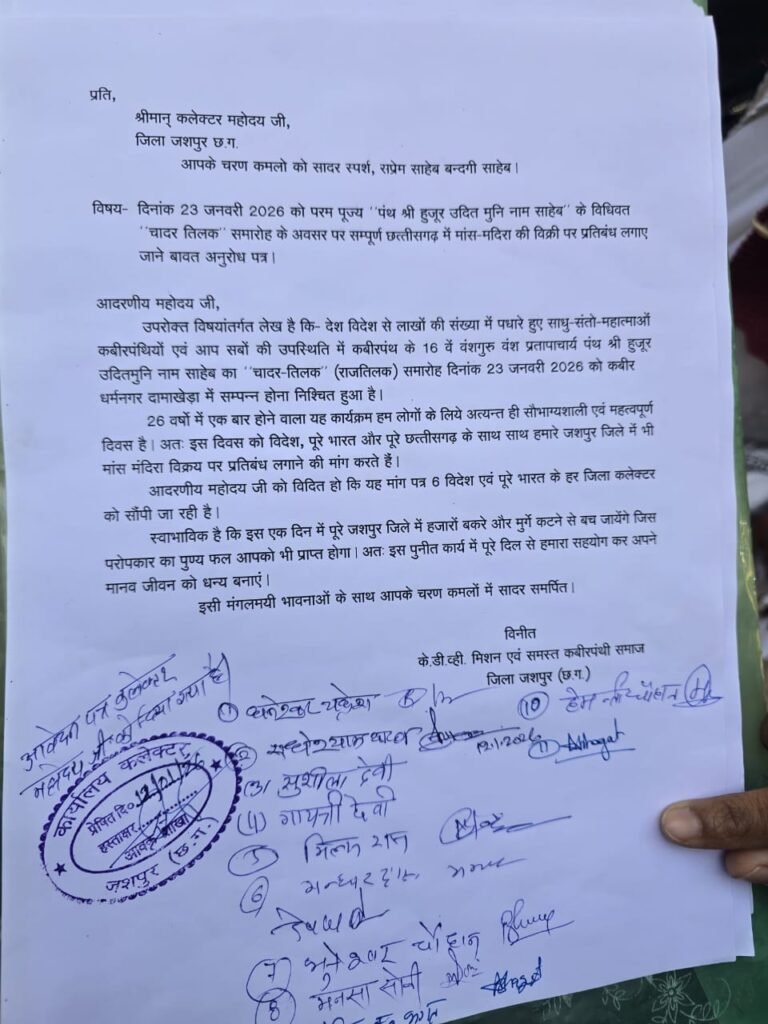 प्रति,
श्रीमान् कलेक्टर महोदय जी,
जिला जशपुर छ.ग.
आपके चरण कमलो को सादर स्पर्श, सप्रेम साहेब बन्दगी साहेब।
विषय- दिनांक 23 जनवरी 2026 को परम पूज्य "पंथ श्री हुजूर उदित मुनि नाम साहेब" के विधिवत
"चादर तिलक" समारोह के अवसर पर सम्पूर्ण छत्तीसगढ़ में मांस-मदिरा की विक्री पर प्रतिबंध लगाए
जाने बावत अनुरोध पत्र।
आदरणीय महोदय जी,
उपरोक्त विषयांतर्गत लेख है कि- देश विदेश से लाखों की संख्या में पधारे हुए साधु-संतो-महात्माओं
कबीरपंथियों एवं आप सबों की उपस्थिति में कबीरपंथ के 16 वें वंशगुरु वंश प्रतापाचार्य पंथ श्री हुजूर
उदितमुनि नाम साहेब का "चादर-तिलक" (राजतिलक) समारोह दिनांक 23 जनवरी 2026 को कबीर
धर्मनगर दामाखेड़ा में सम्पन्न होना निश्चित हुआ है।
26 वर्षो में एक बार होने वाला यह कार्यक्रम हम लोगों के लिये अत्यन्त ही सौभाग्यशाली एवं महत्वपूर्ण
दिवस है। अतः इस दिवस को विदेश, पूरे भारत और पूरे छत्तीसगढ़ के साथ साथ हमारे जशपुर जिले में भी
मांस मंदिरा विक्रय पर प्रतिबंध लगाने की मांग करते हैं।
आदरणीय महोदय जी को विदित हो कि यह मांग पत्र 6 विदेश एवं पूरे भारत के हर जिला कलेक्टर
को सौंपी जा रही है।
स्वाभाविक है कि इस एक दिन में पूरे जशपुर जिले में हजारों बकरे और मुर्गे कटने से बच जायेंगे जिस
परोपकार का पुण्य फल आपको भी प्राप्त होगा। अतः इस पुनीत कार्य में पूरे दिल से हमारा सहयोग कर अपने
मानव जीवन को धन्य बनाएं।
इसी मंगलमयी भावनाओं के साथ आपके चरण कमलों में सादर समर्पित।
विनीत
के.डी.व्ही. मिशन एवं समस्त कबीरपंथी समाज
जिला जशपुर (छ.ग.)
आवेदन पत्र कलेक्टर
महोदय जी को दिया गया है
कार्यालय कलेक्टर
प्रेषित दि. 12/01/26
हस्ताक्षर
आवक शाखा
जशपुर (छ.ग.)
①
⑩ हेम
②
12.1.2026
⑪ Bhagat
(3) सुशीला देवी
(4) गायत्री देवी
⑤
⑥
⑦ भुनेश्वर चौहान
⑧ मनसा सोनी